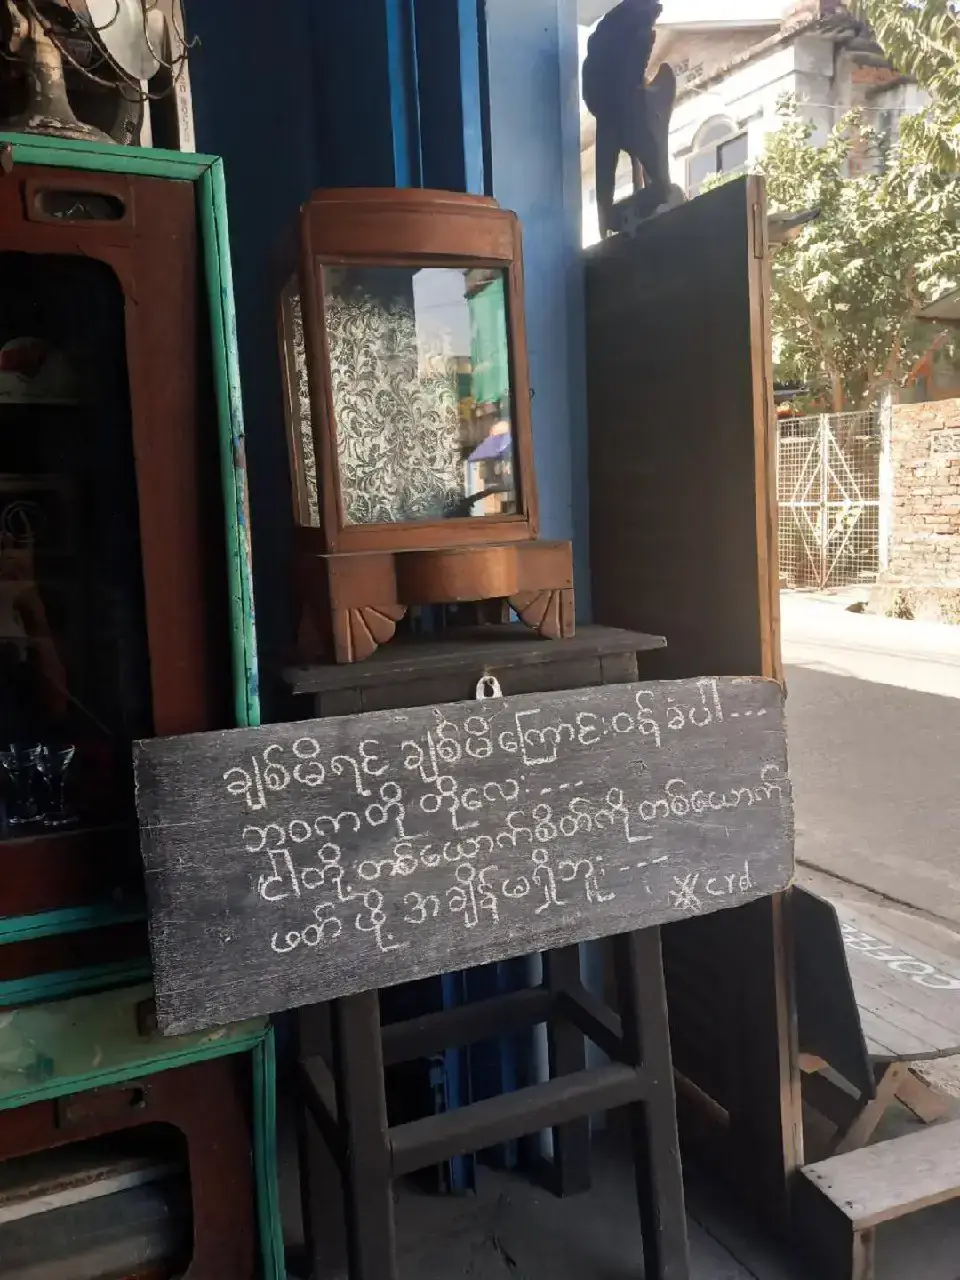 ချစ်မိရင် ချစ်မိကြောင်းဝန်ခံပါ....
ဘဝကတိုတိုလေး ---
ငါတို့တစ်ယောက်စိတ်ကို တစ်ယောက်
ဖတ်ဖို့ အချိန်မရှိဘူး ----
crd
COFFEE